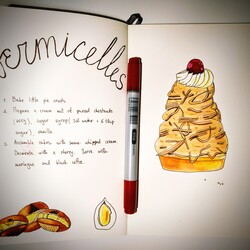 Vermicelles
1. Bake little pie crusts.
2. Prepare a cream out of pureed chestnuts
sugar syrup
water + 6 tbsp
sugar), vanilla
3. Assemble cakes with some whipped cream.
Decorate with a cherry. Serve with
meringue and black coffee.